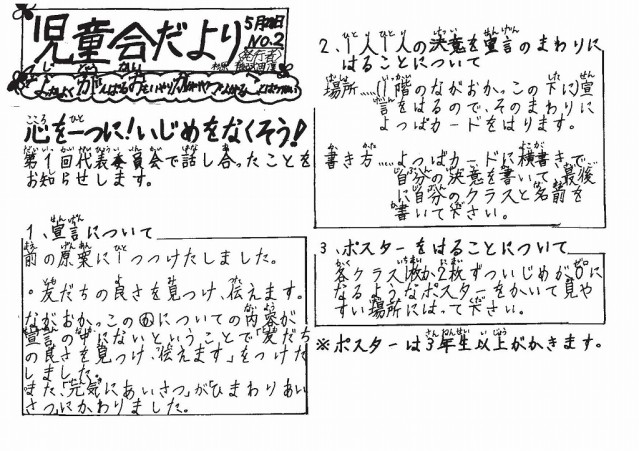 児童会だより
5月28日
No.2
発行者
心を一つに!いじめをなくそう!
第1回代表委員会で話し合ったことを
お知らせします。
1、宣言について
前の原案に1つつけたしました。
・友だちの良さを見つけ、伝えます。
ながおか。このおについての内容が、
宣言の中にないということで「友だち
の良さを見つけ、伝えます」をつけた
しました。
また、「元気にあいさつ」が「ひまわりあい
さつ」にかわりました。
2、1人1人の決意を宣言のまわりに
はることについて
場所……(1階のながおか。この下に宣
言をはるので、そのまわりに
よっぱカードをはります。
書き方……よっぱカードに横書きで
自分の決意を書いて、最後
に自分のクラスと名前を
書いて下さい。
3、ポスターをはることについて
各クラス1枚か2枚ずついじめが0に
なるようなポスターをかいて見や
すい場所にはって下さい。
※ポスターは3年生以上がかきます。